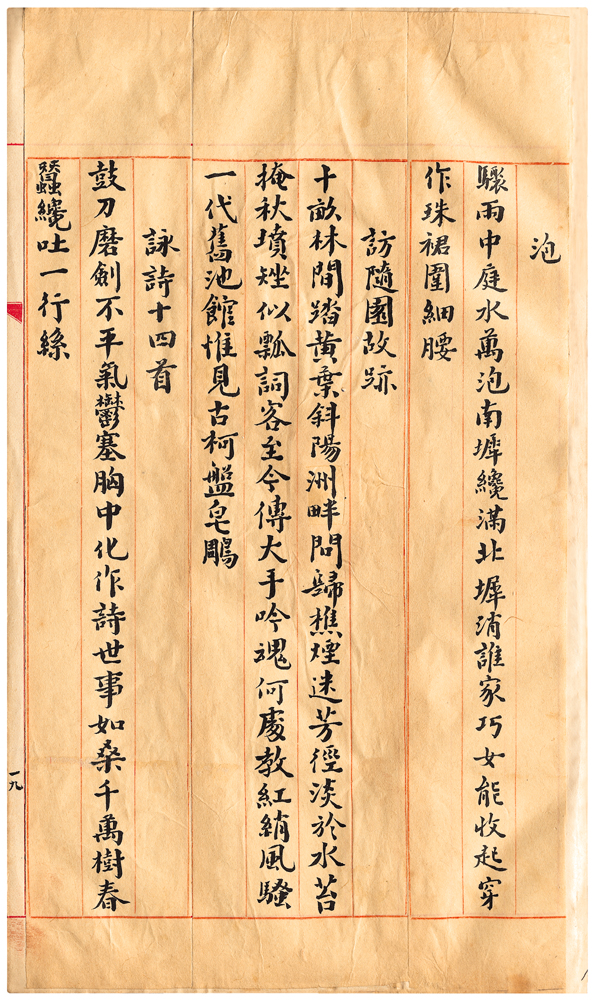 泡
驟雨中庭水萬泡南墀纔滿北墀消誰家巧女能收起穿
作珠裙圍細腰
訪隨園故跡
十畝林間踏黃葉斜陽洲畔問歸樵煙迷芳徑淡於水苔
掩秋墳矬似瓢詞客至今傳大手吟魂何處教紅綃風騷
一代舊池館惟見古柯盤皂鵰
詠詩十四首
鼓刀磨劍不平氣鬱塞胸中化作詩世事如桑千萬樹春
蠶纔吐一行絲
一九